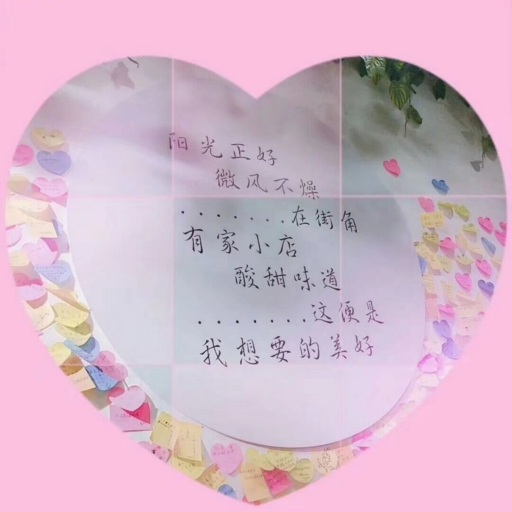 阳光正好
微风不燥
.......在街角
有家小店
酸甜味道
.......这便是
我想要的美好